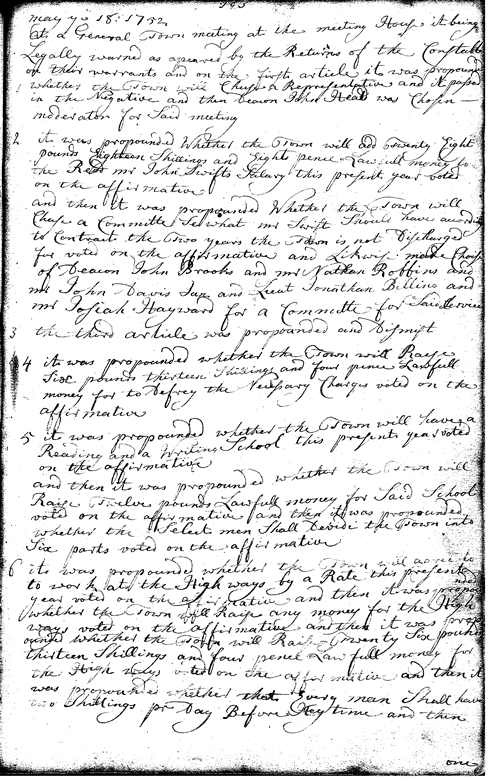 165
may ye 18: 1752
At a General Town meeting at the meeting House it being
Legally warned as apeared by the Returns of the Constable
on their warrants and on the first article it was propound
1 whether the Town will Chuse a Representative and it passed
in the Negative and then Deacon John Heald was Chosen
moderator for Said meeting
2 it was propounded Whether the Town will add Twenty Eight
pounds Eighteen Shillings and Eight pence Lawfull money to
the Revd mr John Swifts Salary this present year voted
on the affirmative
and then it was propounded Whether the Town will
Chuse a Committe Se what mr Swift Should have according
to Contract the Two years the Town is not Discharged
for voted on the affirmative and Likwise made Choise
of Deacon John Brooks and mr Nathan Robbins and
mr John Davis Jun and Lieut Jonathan Billing and
mr Josiah Hayward for a Committe for Said Service
3 the third article was propounded and Dismist
4 it was propounded whether the Town will Raise
Six pounds thirteen Shillings and four pence Lawfull
money for to Defrey the Nessary Charges voted on the
affirmative
5 it was propounded whether the Town will have a
Reading and a Writing School this present year voted
on the affirmative
and then it was propounded whether the Town will
Raise Twelve pounds Lawfull money for Said School
voted on the affirmative and then it was propounded
whether the Select men Shall Devide the Town into
Six parts voted on the affirmative
6 it was propounded whether the Town will agree to
to work at the High ways by a Rate this present
year voted on the affirmative and then it was propo
whether the Town will Raise any money for the High
ways voted on the affirmative and then it was prop
ounded whether the Town will Raise Twenty Six pounds
thirteen Shillings and four pence Lawfull money for
the High ways voted on the affirmative and then it
was propounded whether that Every man Shall have
two Shillings pr Day Before Hey time and then
one